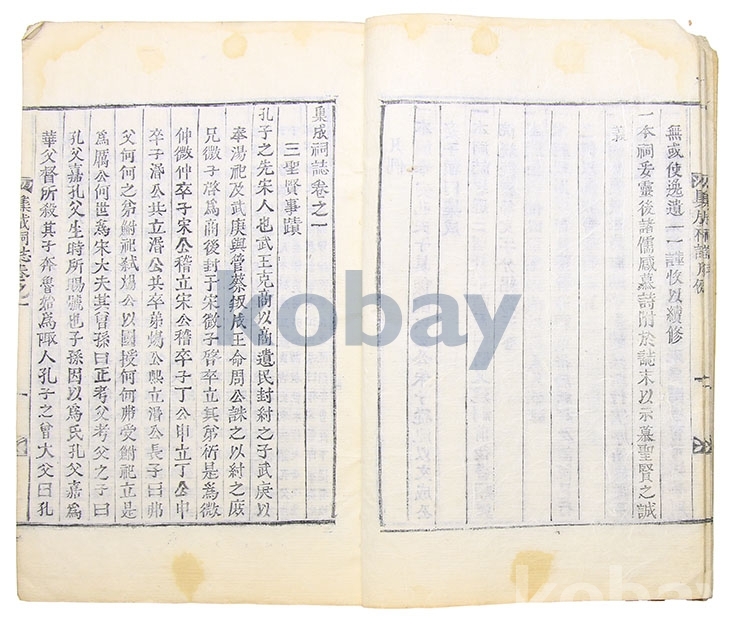 無或使逸遺一一謹收以續修
一本祠妥靈後諸儒感慕詩附於誌末以示慕聖賢之誠
義
集成祠誌卷之一
三聖賢事蹟
孔子之先宋人也武王克商以商遺民封紂之子武庚以
奉湯祀及武庚與管蔡叛成王命周公誅之以紂之庶
兄微子啓爲商後封于宋微子啓卒立其弟衍是爲微
仲微仲卒子宋公稽立宋公稽卒子丁公申立丁公申
卒子湣公共立湣公共卒弟煬公熙立湣公長子曰弗
父何何之弟鮒祀弑煬公以國授何何弗受鮒祀立是
爲厲公何世爲宋大夫其曾孫曰正考父考父之子曰
孔父嘉孔父生時所賜號也子孫因以爲氏孔父嘉爲
華父督所殺其子奔魯始爲陬人孔子之曾大父曰孔
集成祠誌卷之一
一
kobay
kobay